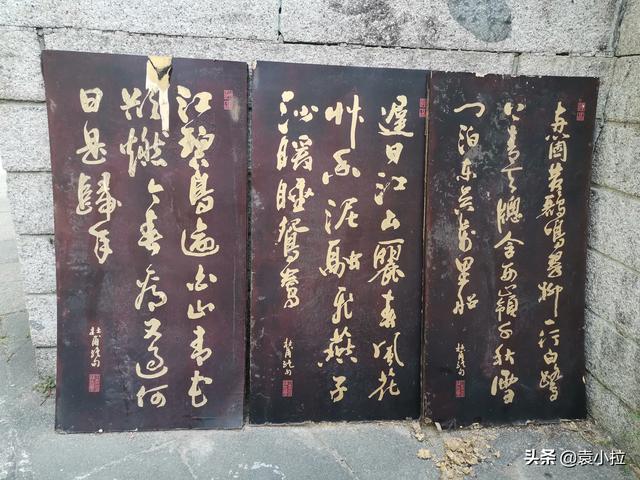 兩箇黃鸝鳴翠柳一行白鷺
上青天牕含西嶺千秋雪
門泊東吳萬里船
杜甫絕句
遲日江山麗春風花
艸香泥融飛燕子
沙暖睡鴛鴦
杜甫絕句
江碧鳥逾白山青花
欲燃今春看又過何
日是歸年
杜甫絕句
头条 @袁小拉